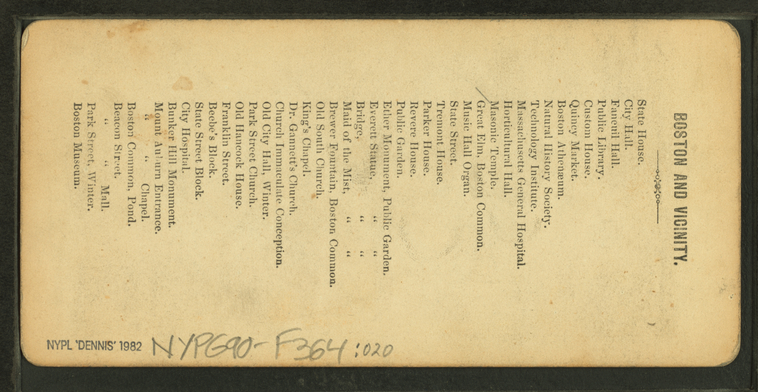 BOSTON AND VICINITY.
State House.
City Hall.
Faneuil Hall.
Public Library.
Custom House.
Quincy Market.
Boston Athenæum.
Natural History Society.
Technology Institute.
Massachusetts General Hospital.
Horticultural Hall.
Great Elm, Boston Common.
Masonic Temple.
Music Hall Organ.
State Street.
Tremont House.
Parker House.
Revere House.
Public Garden.
Ether Monument, Public Garden.
Everett Statue, " "
Bridge, " "
Maid of the Mist, " "
Brewer Fountain, Boston Common.
Old South Church.
King's Chapel.
Dr. Gannett's Church.
Church Immaculate Conception.
Old City Hall, Winter.
Park Street Church.
Old Hancock House.
Franklin Street.
Beebe's Block.
State Street Block.
City Hospital.
Bunker Hill Monument.
Mount Auburn Entrance.
" " Chapel.
Boston Common, Pond.
Beacon Street.
" " Mall.
Park Street, Winter.
Boston Museum.
NYPL 'DENNIS' 1982 NYPG90-F364:020